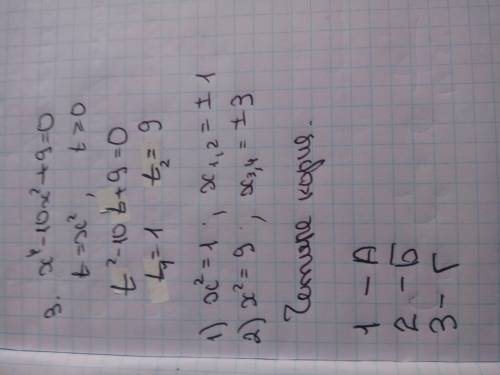 3. x⁴-10x²+9=0
t=x², t≥0
t²-10t+9=0
t₁=1 t₂=9
1) x²=1; x₁,₂=±1
2) x²=9; x₃,₄=±3
Четыре корня.
1 - А
2 - Б
3 - Г